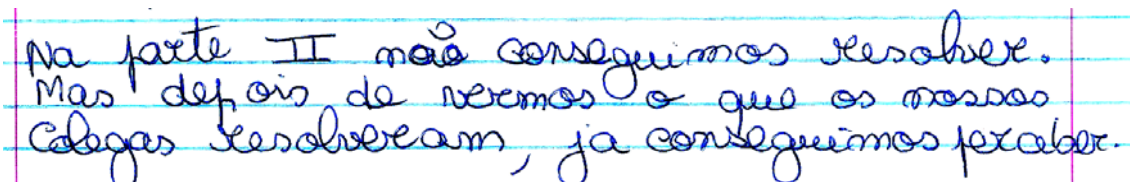 Na parte II não conseguimos resolver.
Mas depois de vermos o que os nossos
colegas resolveram, ja conseguimos perceber.